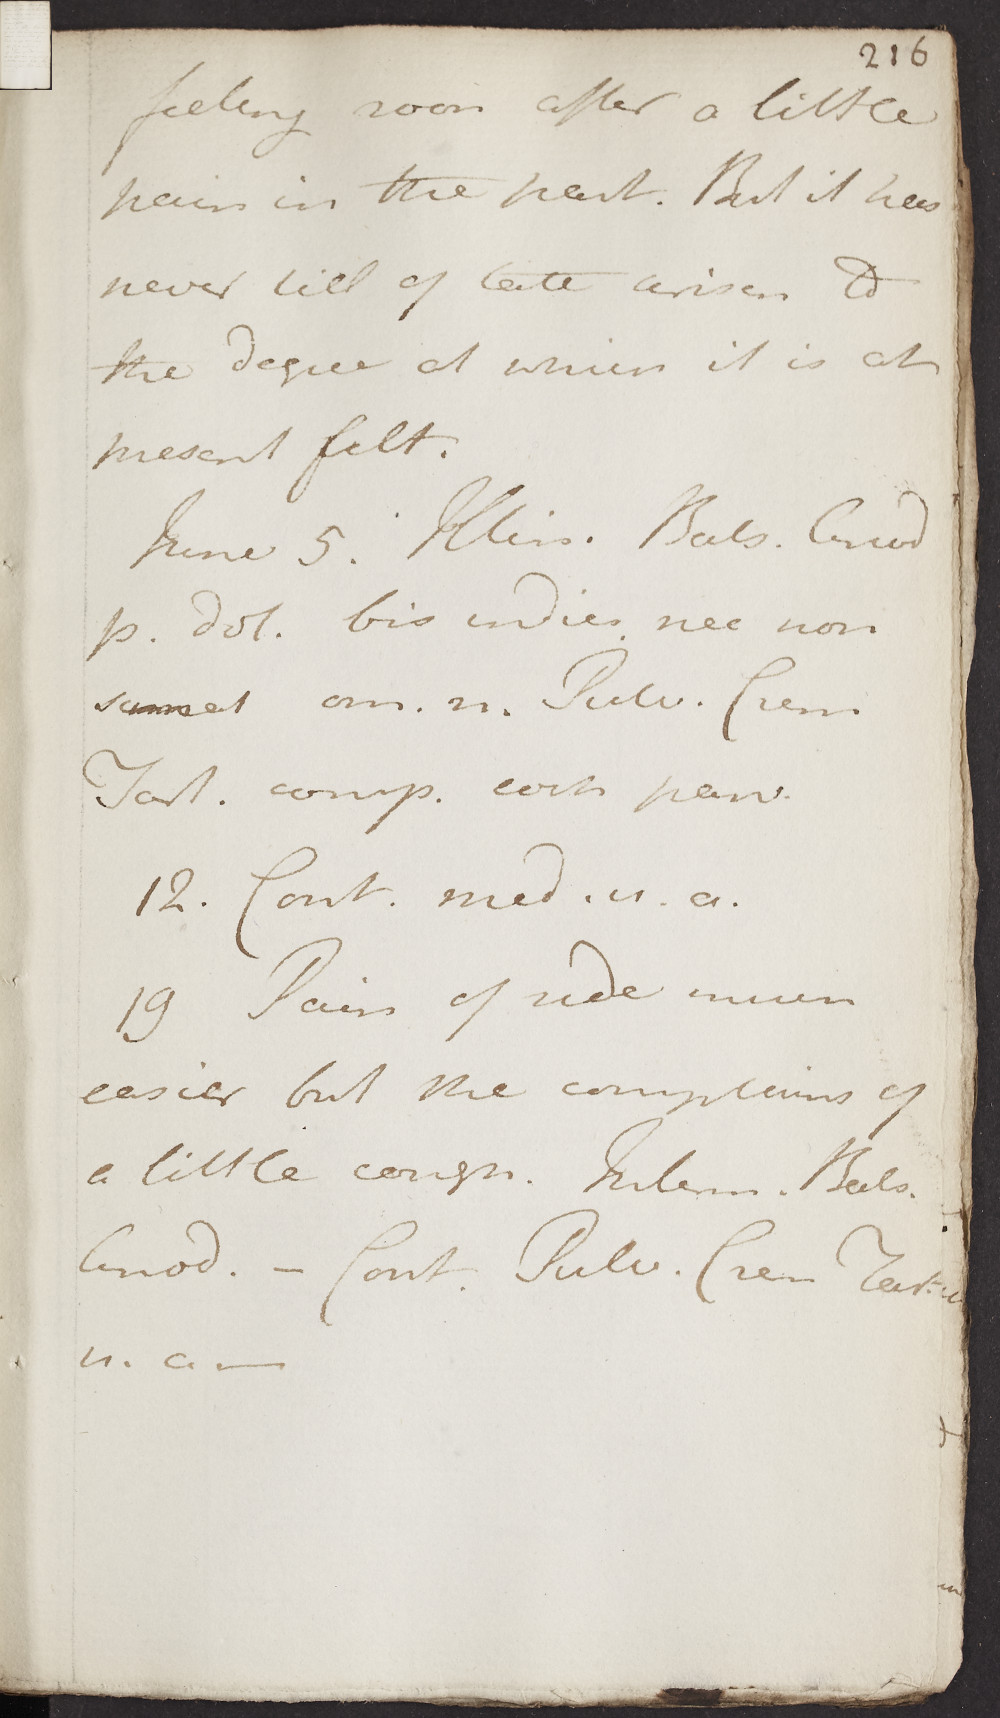 216
feeling soon after a little
pain in the part. But it has
never till of late arisen to
the degree at which it is at
present felt.
June 5. Illin. Bals. Anod
p. dol. bis indies nec non
om. n. Pulv. Crem
Tart. comp. coch parv.
12. Cont. med. u. a.
19 Pain of side much
easier but she complains of
a little cough. Intern. Bals.
Anod. - Cont. Pulv. Crem Tart.
u. a —